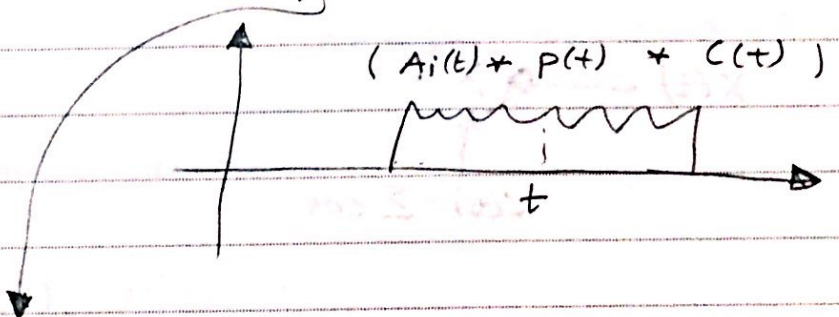 ( Ai(t) * p(t) * C(t) )
t